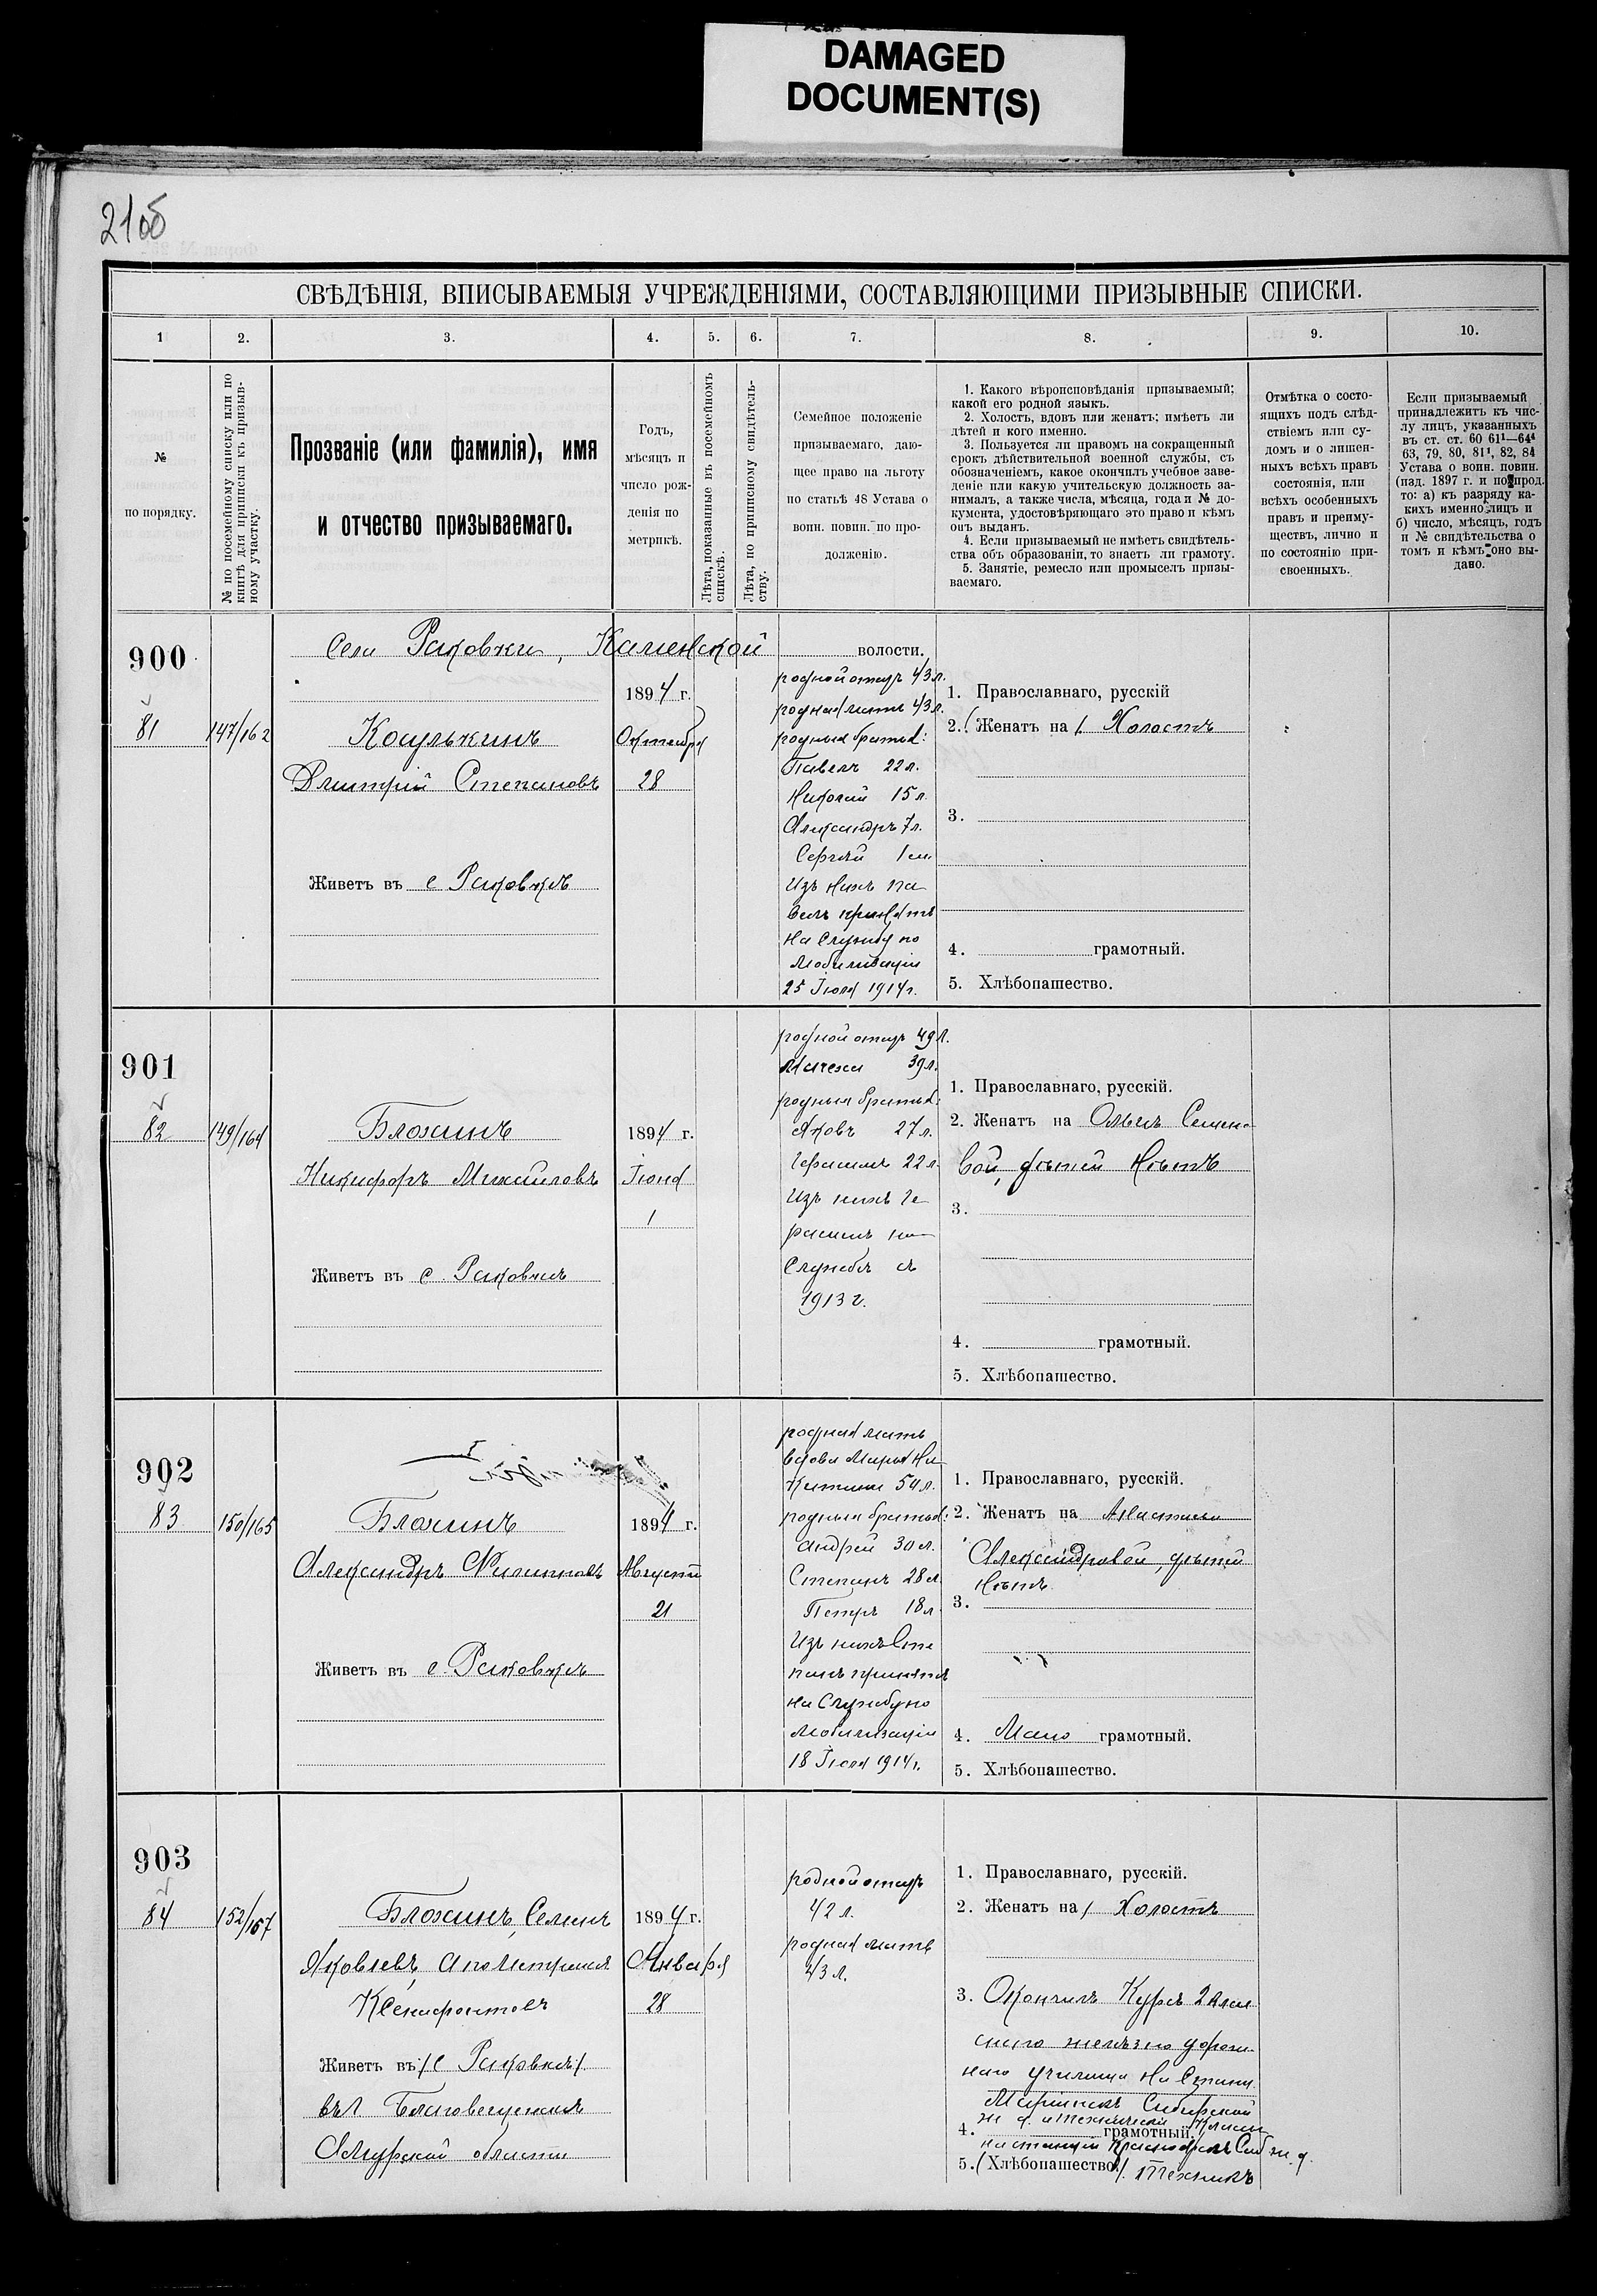 DAMAGED
DOCUMENT(S)
21об
СВѢДѢНІЯ, ВПИСЫВАЕМЫЯ УЧРЕЖДЕНІЯМИ, СОСТАВЛЯЮЩИМИ ПРИЗЫВНЫЕ СПИСКИ.
1 2. 3. 4. 5. 6. 7. 8. 9. 10.
№
по порядку.
№ по посемейному списку или по
книгѣ для приписки къ призыв-
ному участку.
Прозваніе (или фамилія), имя
и отчество призываемаго.
Годъ,
мѣсяцъ и
число рож-
денія по
метрикѣ.
Лѣта, показанные въ посемейномъ
спискѣ.
Лѣта, по приписному свидѣтель-
ству.
Семейное положеніе
призываемаго, даю-
щее право на льготу
по статьѣ 48 Устава о
воин. повин. по про-
долженію.
1. Какого вѣроисповѣданія призываемый;
какой его родной языкъ.
2. Холостъ, вдовъ или женатъ; имѣетъ ли
дѣтей и кого именно.
3. Пользуется ли правомъ на сокращенный
срокъ дѣйствительной военной службы, съ
обозначеніемъ, какое окончилъ учебное заве-
деніе или какую учительскую должность за-
нималъ, а также числа, мѣсяца, года и № до-
кумента, удостовѣряющаго это право и кѣмъ
онъ выданъ.
4. Если призываемый не имѣетъ свидѣтель-
ства объ образованіи, то знаетъ ли грамоту.
5. Занятіе, ремесло или промыселъ призы-
ваемаго.
Отмѣтка о состо-
ящихъ подъ слѣд-
ствіемъ или су-
домъ и о лишен-
ныхъ всѣхъ правъ
состоянія, или
всѣхъ особенныхъ
правъ и преиму-
ществъ, лично и
по состоянію при-
своенныхъ.
Если призываемый
принадлежитъ къ чис-
лу лицъ, указанныхъ
въ ст. ст. 60 61¹—64⁴
63, 79, 80, 81¹, 82, 84
Устава о воин. повин.
(изд. 1897 г. и по прод.
то: а) къ разряду ка-
кихъ именно лицъ и
б) число, мѣсяцъ, годъ
и № свидѣтельства о
томъ и кѣмъ оно вы-
дано.
900
Села Раковки, Каменской волости.
81
147/162
Косулькинъ
Дмитрій Степановъ
Живетъ въ с Раковкѣ
1894 г.
Октября
28
родной отецъ 43 л.
родная мать 43 л.
родные братья:
Павелъ 22 л.
Николай 15 л.
Александръ 7 л.
Сергѣй
Изъ нихъ Па
велъ принятъ
на Службу по
Мобилизаціи
25 Іюля 1914 г.
1. Православнаго, русскій
2. (Женатъ на). Холостъ
3.
4. грамотный.
5. Хлѣбопашество.
901
82
149/164
Блохинъ
Никифоръ Михайловъ
Живетъ въ с. Раковкѣ
1894 г.
Іюня
1
родной отецъ 49 л.
Мачеха 39 л.
родные братья:
Яковъ 27 л.
Герасимъ 22 л.
Изъ нихъ Ге
расимъ на
Службѣ съ
1913 г.
1. Православнаго, русскій.
2. Женатъ на Ольгѣ Семено
вой, дѣтей нѣтъ
3.
4. грамотный.
5. Хлѣбопашество.
902
83
150/165
Блохинъ
Александръ Филипповъ
Живетъ въ с. Раковкѣ
1894 г.
Августа
21
родная мать
вдова Марья Ни
китина 54 л.
родные братья:
Андрей 30 л.
Степанъ 28 л.
Петръ 18 л.
Изъ нихъ Сте
панъ принятъ
на Службу по
Мобилизаціи
18 Іюля 1914 г.
1. Православнаго, русскій.
2. Женатъ на
Александровой, дѣтей
нѣтъ
3.
4. Мало грамотный.
5. Хлѣбопашество.
903
84
152/167
Блохинъ, Семенъ
Яковлевъ, а по Метрикѣ
Ксенофонтовъ
Живетъ въ /с Раковкѣ/.
въ г Благовещенскѣ
Амурской области
1894 г.
Января
28
родной отецъ
42 л.
родная мать
43 л.
1. Православнаго, русскій.
2. Женатъ на / Холостъ
3. Окончилъ Курсъ 2 клас
снаго желѣзно дорож-
наго училища на Станц.
Маріинскъ Сибирской
ж д. и технической
4. грамотный.
на станціи Красноярскъ Сиб ж. д.
5. (Хлѣбопашество)/. Техникъ